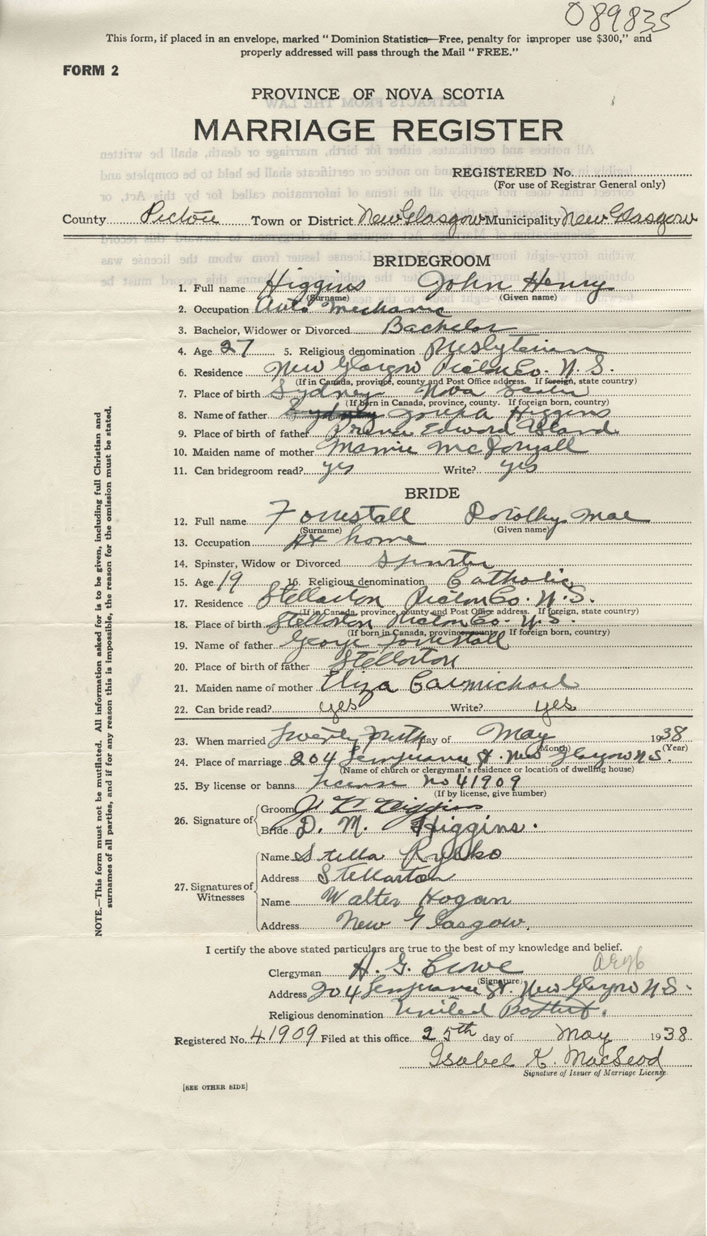 089835
This form, if placed in an envelope, marked "Dominion Statistics—Free, penalty for improper use $300," and
properly addressed will pass through the Mail "FREE."
FORM 2
PROVINCE OF NOVA SCOTIA
MARRIAGE REGISTER
REGISTERED No.
(For use of Registrar General only)
County Pictou Town or District New Glasgow Municipality New Glasgow
BRIDEGROOM
1. Full name Higgins John Henry
(Surname) (Given name)
2. Occupation Auto Mechanic
3. Bachelor, Widower or Divorced Bachelor
4. Age 27 5. Religious denomination Presbyterian
6. Residence New Glasgow Pictou Co. N.S.
(If in Canada, province, county and Post Office address. If foreign, state country)
7. Place of birth Sydney Nova Scotia
(If born in Canada, province, county. If foreign born, county)
8. Name of father Joseph Higgins
9. Place of birth of father Prince Edward Island
10. Maiden name of mother Mamie McDougall
11. Can bridegroom read? yes Write? yes
BRIDE
12. Full name Forrestall Dorothy Mae
(Surname) (Given name)
13. Occupation At home
14. Spinster, Widow or Divorced Spinster
15. Age 19 16. Religious denomination Catholic
17. Residence Stellarton Pictou Co. N.S.
(If in Canada, province, county and Post Office address. If foreign, state country)
18. Place of birth Stellarton Pictou Co. N.S.
(If born in Canada, province, county. If foreign born, country)
19. Name of father George Forrestall
20. Place of birth of father Stellarton
21. Maiden name of mother Eliza Carmichael
22. Can bride read? yes Write? yes
23. When married Twenty day of May 1938
(Month) (Year)
24. Place of marriage 204 Temperance St. New Glasgow N.S.
(Name of church or clergyman's residence or location of dwelling house)
25. By license or banns License no 41909
(If by license, give number)
26. Signature of Groom J H Higgins
Bride D. M. Higgins.
27. Signatures of Witnesses
Name Stella Rybko
Address Stellarton
Name Walter Hogan
Address New Glasgow.
I certify the above stated particulars are true to the best of my knowledge and belief.
Clergyman H. G. Crowe
(Signature)
Address 204 Temperance St. New Glasgow N.S.
Religious denomination United Baptist.
Registered No. 41909 Filed at this office 25th day of May 1938
Isabel K. MacLeod
Signature of Issuer of Marriage License
[SEE OTHER SIDE]
NOTE.—This form must not be mutilated. All information asked for is to be given, including full Christian and
surnames of all parties, and if for any reason this is impossible, the reason for the omission must be stated.